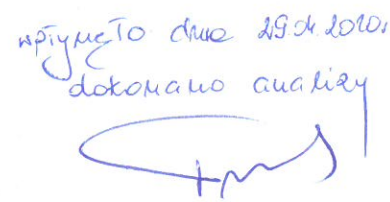 wpłynęło dnia 29.04.2010r
dokonano analizy